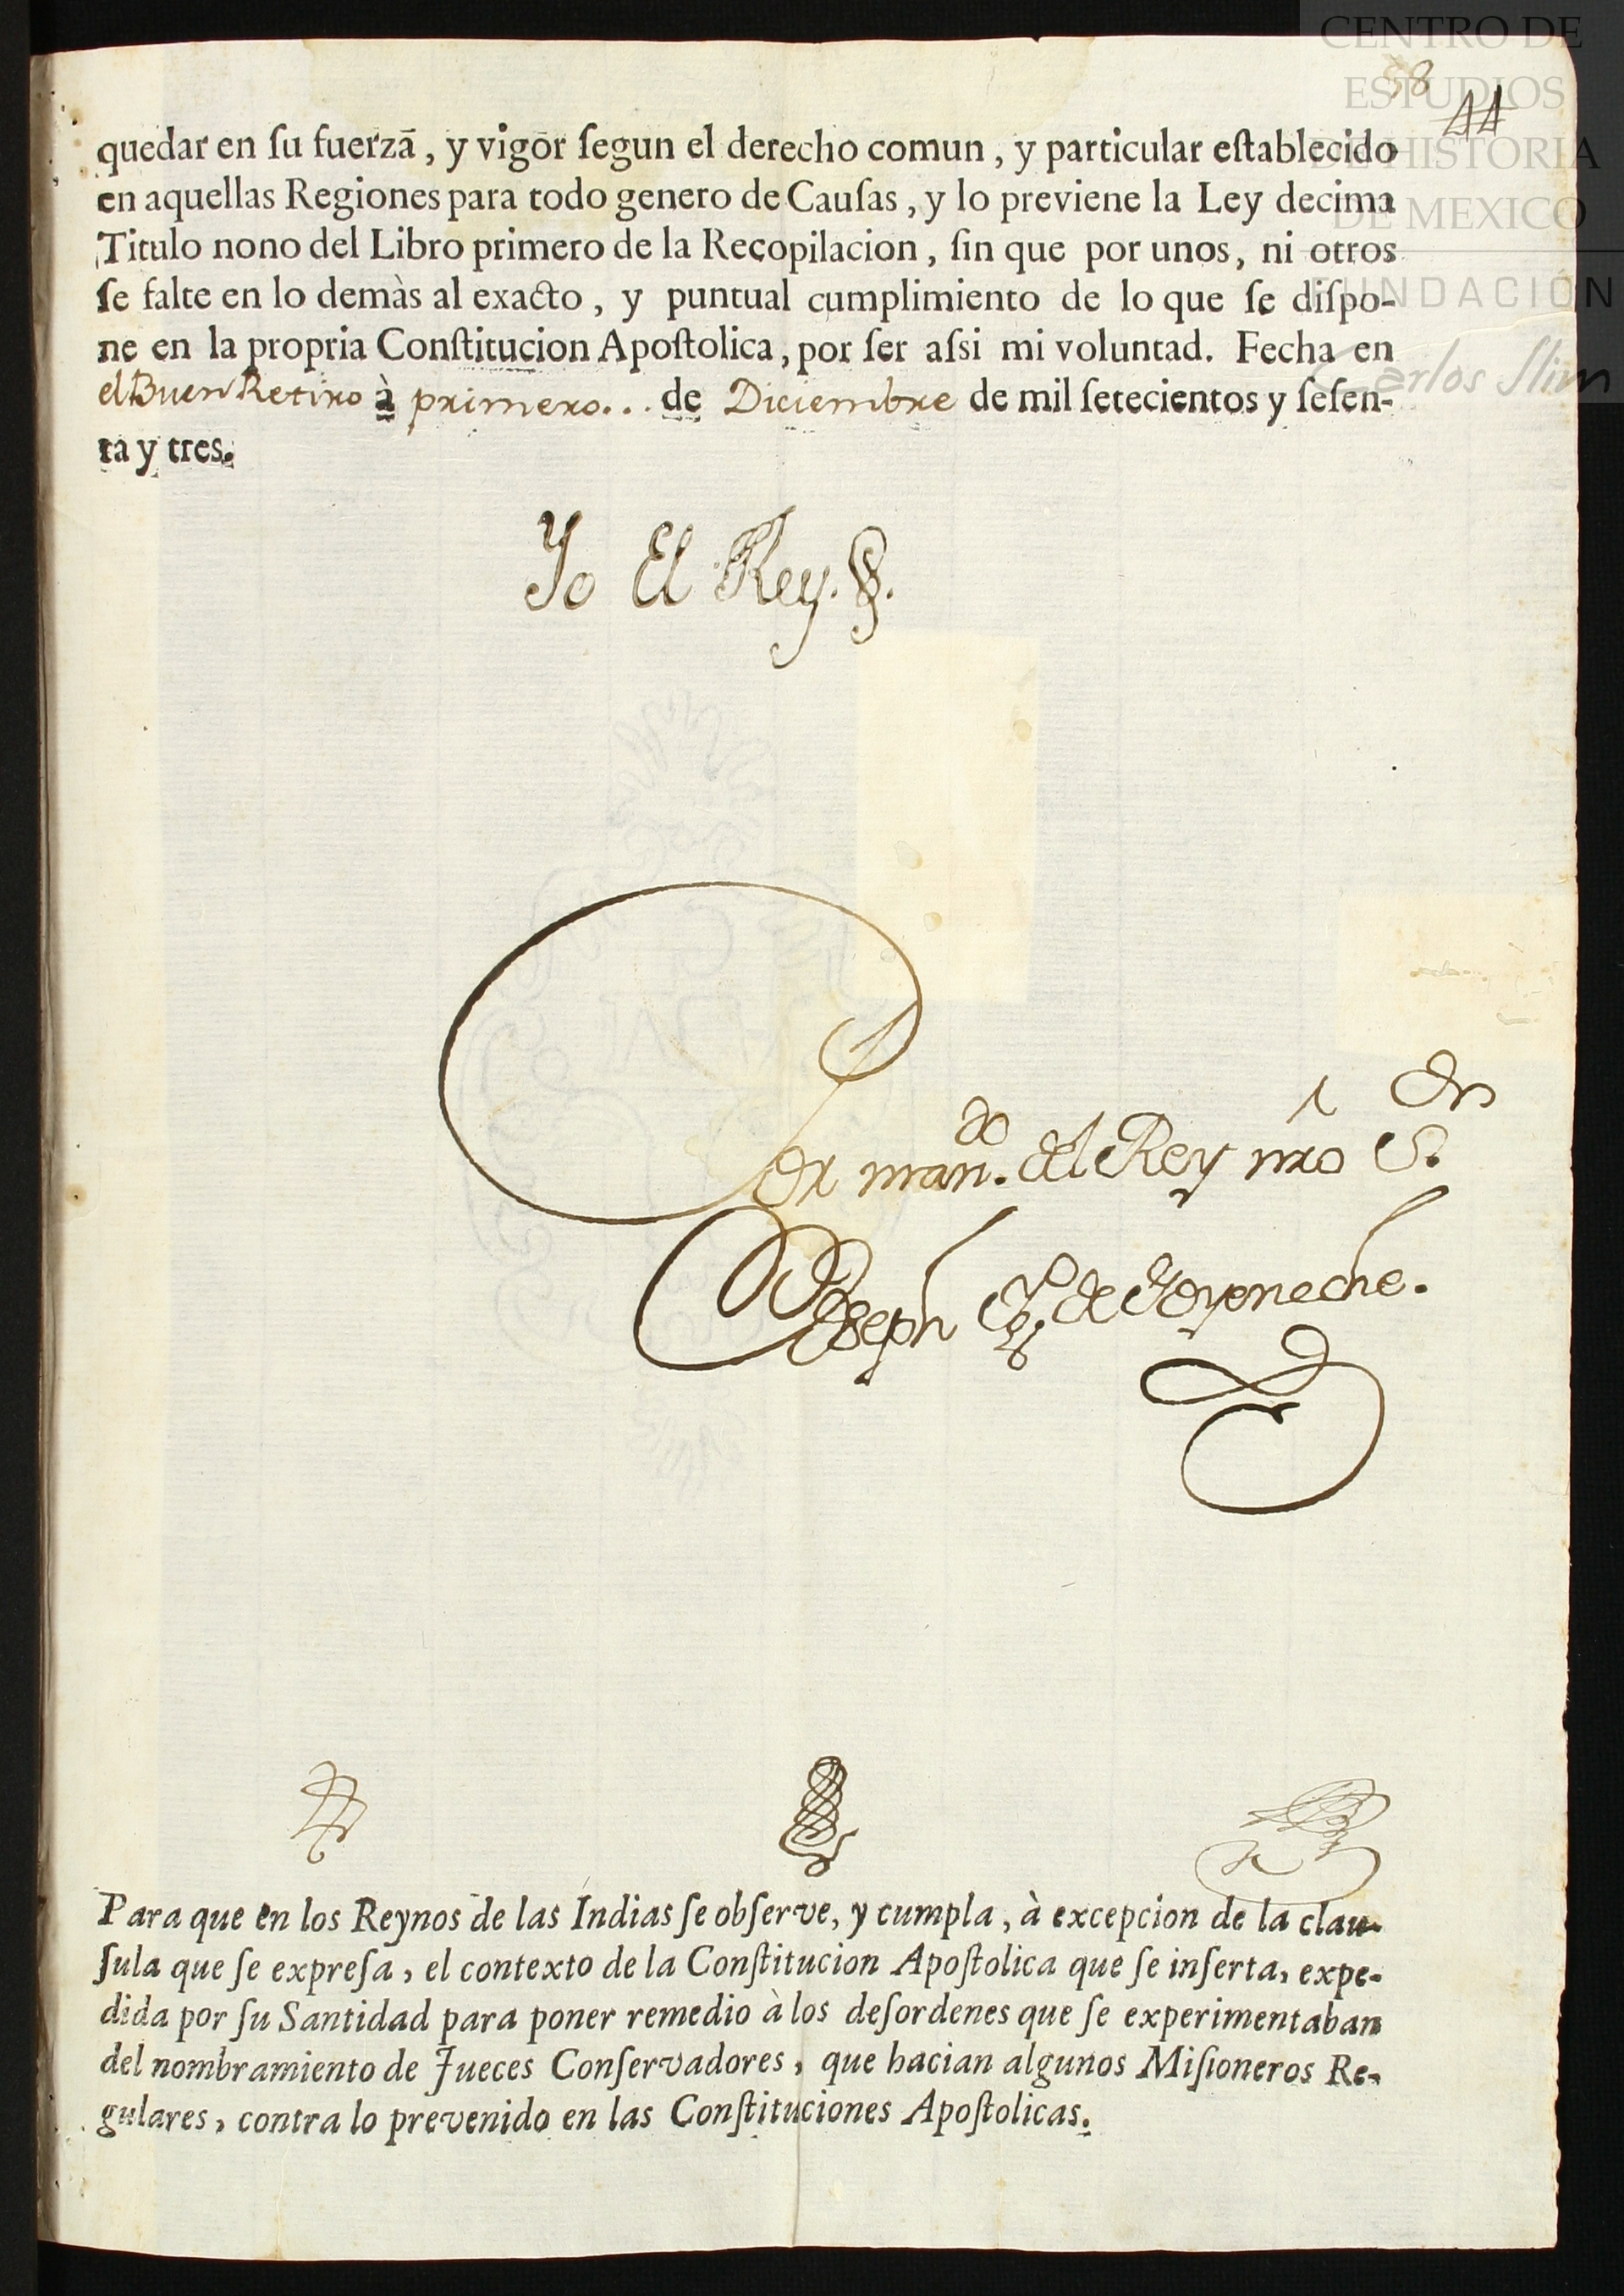 CENTRO DE
ESTUDIOS
DE HISTORIA
DE MEXICO
FUNDACIÓN
Carlos Slim
58
44
quedar en ſu fuerzā, y vigor ſegun el derecho comun, y particular eſtablecido
en aquellas Regiones para todo genero de Cauſas, y lo previene la Ley decima
Titulo nono del Libro primero de la Recopilacion, ſin que por unos, ni otros
ſe falte en lo demàs al exacto, y puntual cumplimiento de lo que ſe diſpo-
ne en la propria Conſtitucion Apoſtolica, por ſer aſsi mi voluntad. Fecha en
el Buen Retiro à primero... de Diciembre de mil ſetecientos y ſeſen-
ta y tres.
Yo El Rey.
Por man.do del Rey nro S.or
Joseph de Goyeneche.
Para que en los Reynos de las Indias ſe obſerve, y cumpla, à excepcion de la clau-
ſula que ſe expreſa, el contexto de la Conſtitucion Apoſtolica que ſe inſerta, expe-
dida por ſu Santidad para poner remedio à los deſordenes que ſe experimentaban
del nombramiento de Jueces Conſervadores, que hacian algunos Miſioneros Re-
gulares, contra lo prevenido en las Conſtituciones Apoſtolicas.